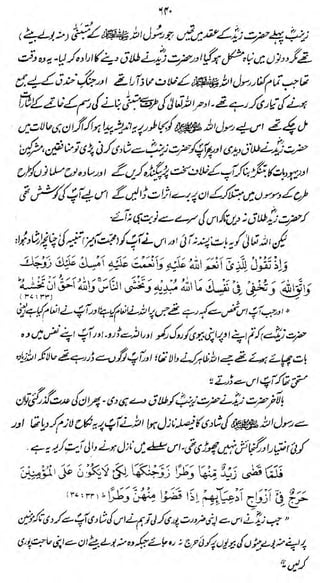 ۶۳۰
زینبؓ پہلے حضرت زیدؓ کے عقد میں تھیں جو رسول اللہ ﷺ کے متبنّٰی (منہ بولے بیٹے)
تھے مگر دونوں میں نباہ مشکل ہوگیا اور حضرت زیدؓ نے طلاق دینے کا ارادہ کر لیا۔ یہ وہ وقت
تھا جب تمام کفار رسول اللہ ﷺ کے خلاف محاذ آرا تھے اور جنگِ خندق کے لیے جمع
ہونے کی تیاری کر رہے تھے۔ ادھر اللہ تعالیٰ کی طرف سے متبنّٰی بنانے کی رسم کے خاتمے کے اشارات
مل چکے تھے۔ اس لیے رسول اللہ ﷺ کو بجا طور پر یہ اندیشہ پیدا ہوا کہ اگر ان ہی حالات میں
حضرت زیدؓ نے طلاق دیدی اور پھر آپؐ کو حضرت زینبؓ سے شادی کرنی پڑی تو منافقین، مشرکین
اور یہود بات کا بتنگڑ بنا کر آپؐ کے خلاف سخت پروپیگنڈہ کریں گے اور سادہ لوح مسلمانوں کو طرح
طرح کے وسوسوں میں مبتلا کر کے ان پر برے اثرات ڈالیں گے اس لیے آپؐ کی کوشش تھی
کہ حضرت زیدؓ طلاق نہ دیں تاکہ اس کی سرے سے نوبت ہی نہ آئے۔
لیکن اللہ تعالیٰ کو یہ بات پسند نہ آئی اور اس نے آپؐ کو (محبت آمیز) تنبیہ کی چنانچہ ارشاد ہوا:
وَإِذْ تَقُولُ لِلَّذِي أَنْعَمَ اللَّهُ عَلَيْهِ وَأَنْعَمْتَ عَلَيْهِ أَمْسِكْ عَلَيْكَ زَوْجَكَ
وَاتَّقِ اللَّهَ وَتُخْفِي فِي نَفْسِكَ مَا اللَّهُ مُبْدِيهِ وَتَخْشَى النَّاسَ وَاللَّهُ أَحَقُّ أَنْ تَخْشَاهُ ؕ
(۳۷:۳۳)
” اور جب آپؐ اس شخص سے کہہ رہے تھے جس پر اللہ نے انعام کیا ہے اور آپؐ نے انعام کیا ہے (یعنی
حضرت زیدؓ سے) کہ تم اپنے اوپر اپنی بیوی کو روک رکھو اور اللہ سے ڈرو۔ اور آپؐ اپنے نفس میں وہ
بات چھپائے ہوئے تھے جسے اللہ ظاہر کرنے والا تھا؛ اور آپؐ لوگوں سے ڈر رہے تھے حالانکہ اللہ زیادہ
مستحق تھا کہ آپؐ اس سے ڈرتے “
بالآخر حضرت زیدؓ نے حضرت زینبؓ کو طلاق دے ہی دی۔ پھر ان کی عدت گذر گئی تو ان
سے رسول اللہ ﷺ کی شادی کا فیصلہ نازل ہوا۔ اللہ نے آپؐ پر یہ نکاح لازم کر دیا تھا اور
کوئی اختیار اور گنجائش نہیں چھوڑی تھی۔ اس سلسلے میں نازل ہونے والی آیتِ کریمہ یہ ہے:
فَلَمَّا قَضَى زَيْدٌ مِنْهَا وَطَرًا زَوَّجْنَاكَهَا لِكَيْ لَا يَكُونَ عَلَى الْمُؤْمِنِينَ
حَرَجٌ فِي أَزْوَاجِ أَدْعِيَائِهِمْ إِذَا قَضَوْا مِنْهُنَّ وَطَرًا ؕ (۳۷:۳۳)
” جب زیدؓ نے اس سے اپنی ضرورت پوری کر لی تو ہم نے اس کی شادی آپؐ سے کر دی تاکہ مومنین
پر اپنے منہ بولے بیٹوں کی بیویوں پر کوئی حرج نہ رہ جائے جبکہ وہ منہ بولے بیٹے ان سے اپنی حاجت پوری
کر لیں “